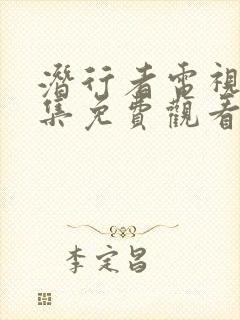 潛行者電視
集免費觀看
李定昌